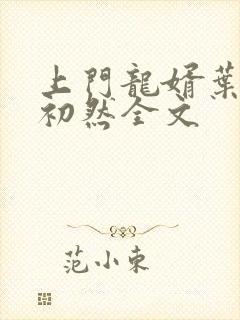 上門龍婿葉
初然全文
范小東